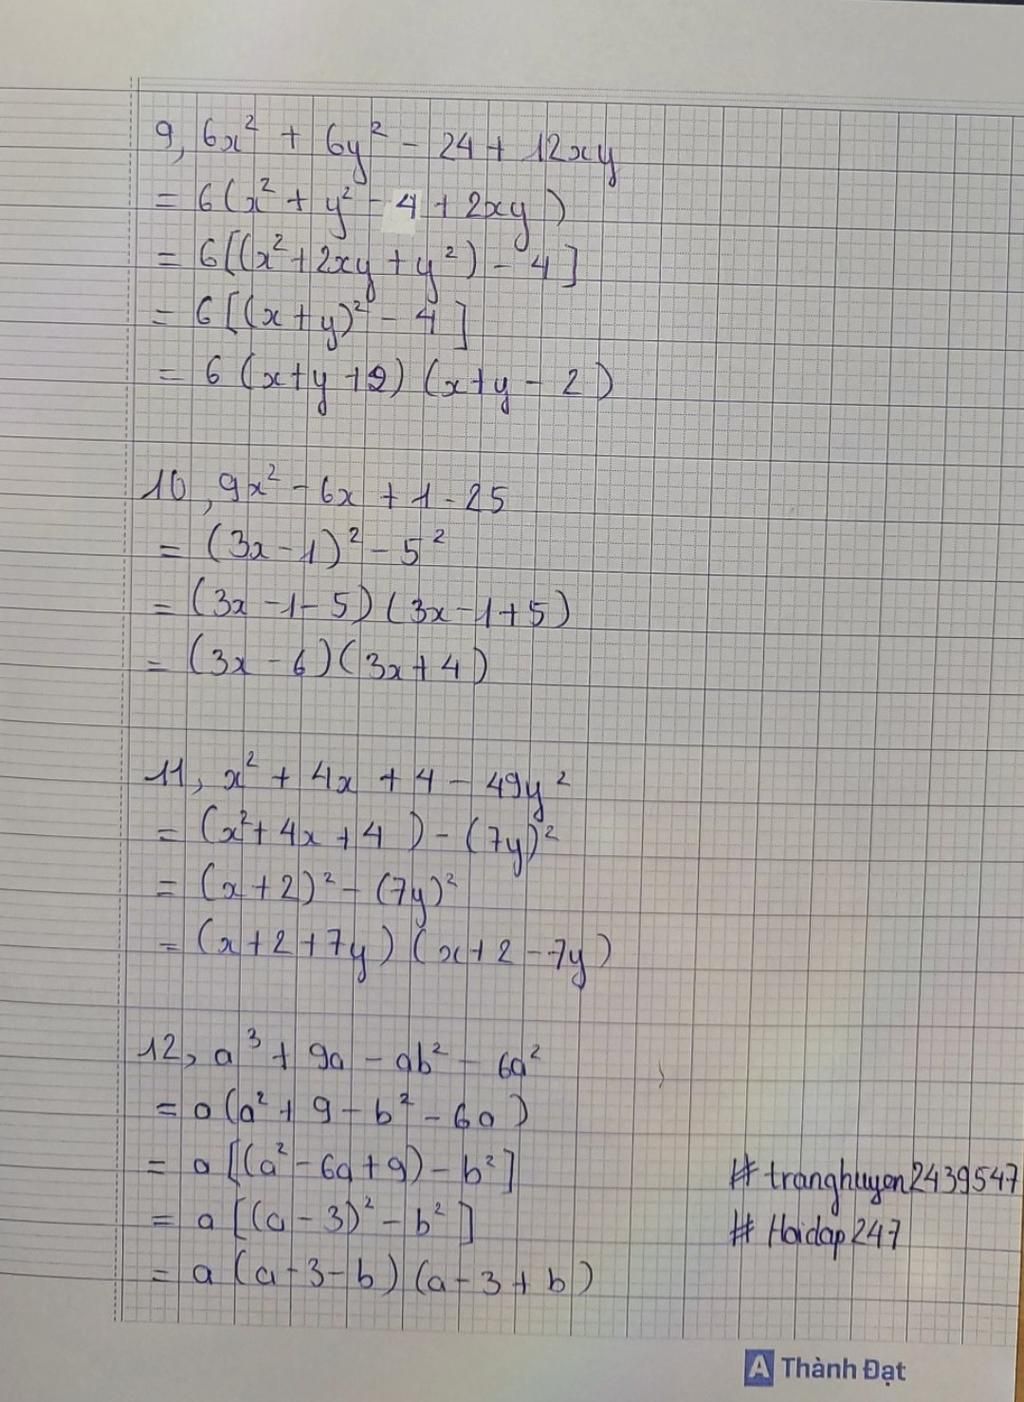 9, 6x² + 6y² - 24 + 12xy
= 6(x² + y² - 4 + 2xy)
= 6[(x² + 2xy + y²) - 4]
= 6[(x + y)² - 4]
= 6(x+y+2)(x+y-2)
10, 9x² - 6x + 1 - 25
= (3x - 1)² - 5²
= (3x - 1 - 5)(3x - 1 + 5)
= (3x - 6)(3x + 4)
11, x² + 4x + 4 - 49y²
= (x² + 4x + 4) - (7y)²
= (x + 2)² - (7y)²
= (x + 2 + 7y)(x + 2 - 7y)
12, a³ + 9a - ab² - 6a²
= a(a² + 9 - b² - 6a)
= a[(a² - 6a + 9) - b²]
= a[(a - 3)² - b²]
= a(a - 3 - b)(a - 3 + b)
# tranghuyen2439547
# Hoidap247
A Thành Đạt